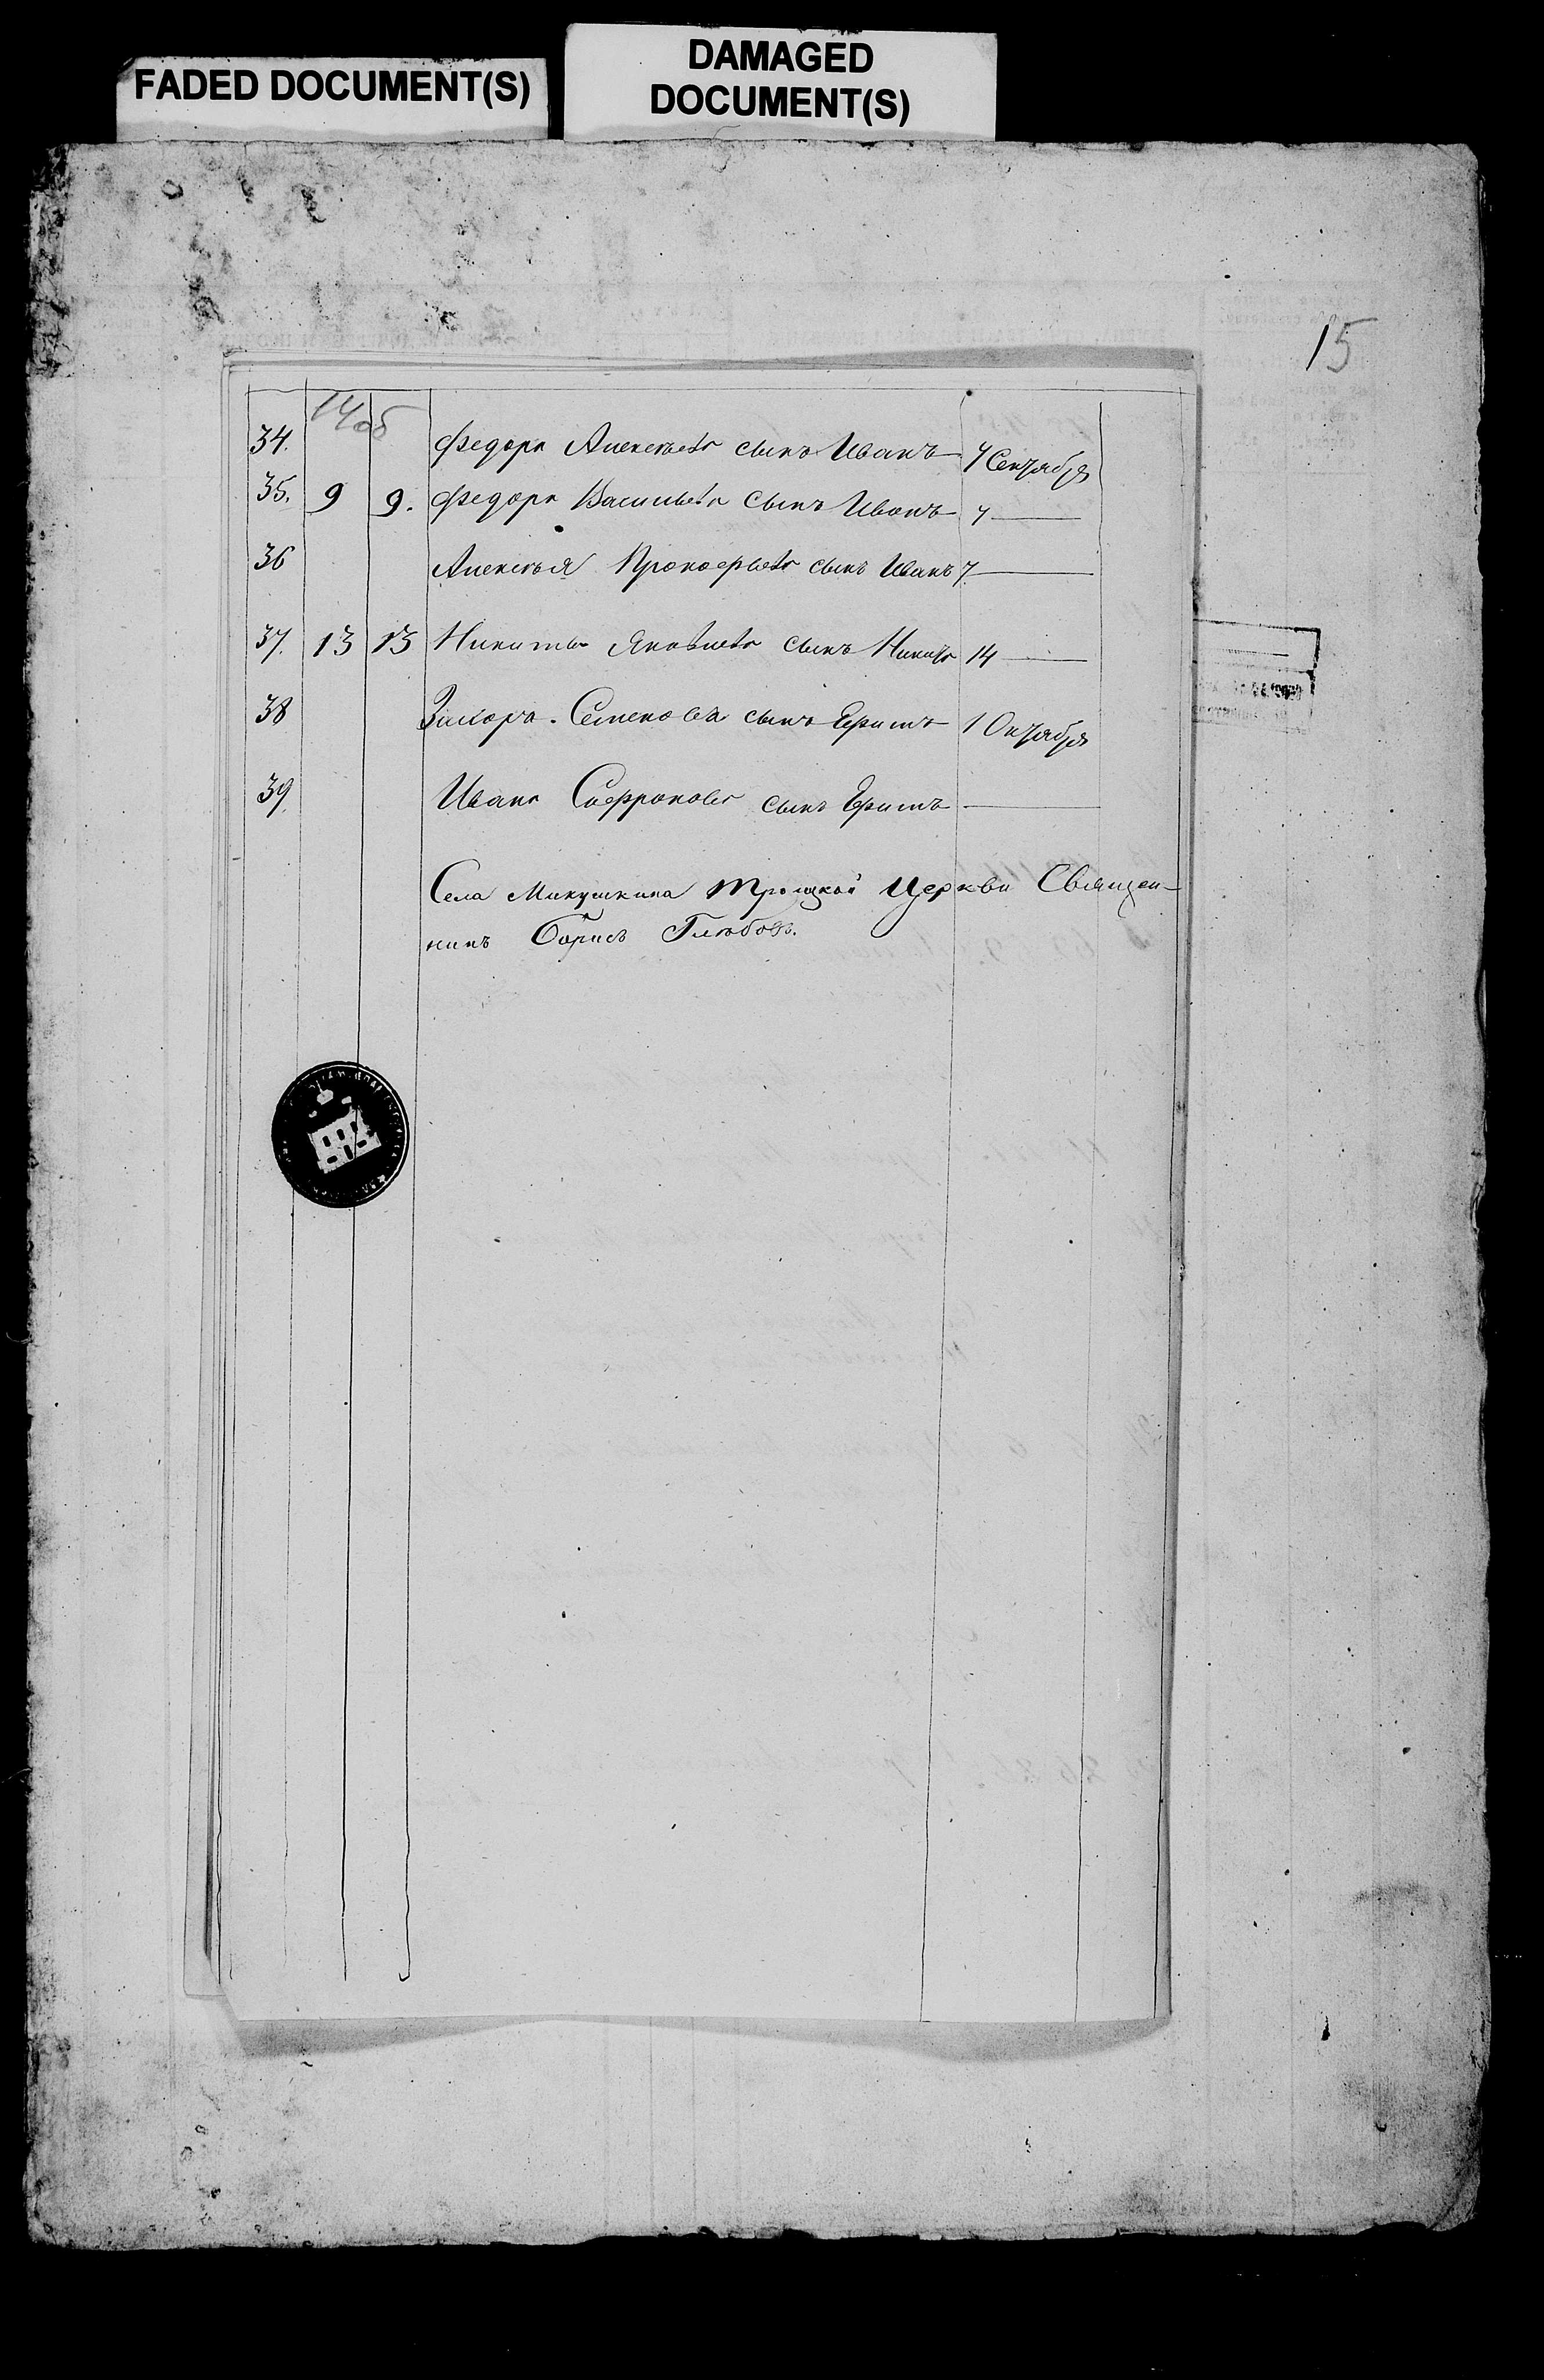 FADED DOCUMENT(S)
DAMAGED
DOCUMENT(S)
15
14об
34. Федора Алексѣева сынъ Иванъ 7 Сентября
35. 9 9. Федора Васильева сынъ Иванъ 7 —
36 Алексѣя Прокофьева сынъ Иванъ 7 —
37. 13 13 Никиты Яковлева сынъ Никита 14 —
38 Захара Семенова сынъ 1 Октября
39 Ивана Сафронова сынъ —
Села Микушкина Троицкой Церкви Священ-
никъ Борисъ Глѣбовъ.